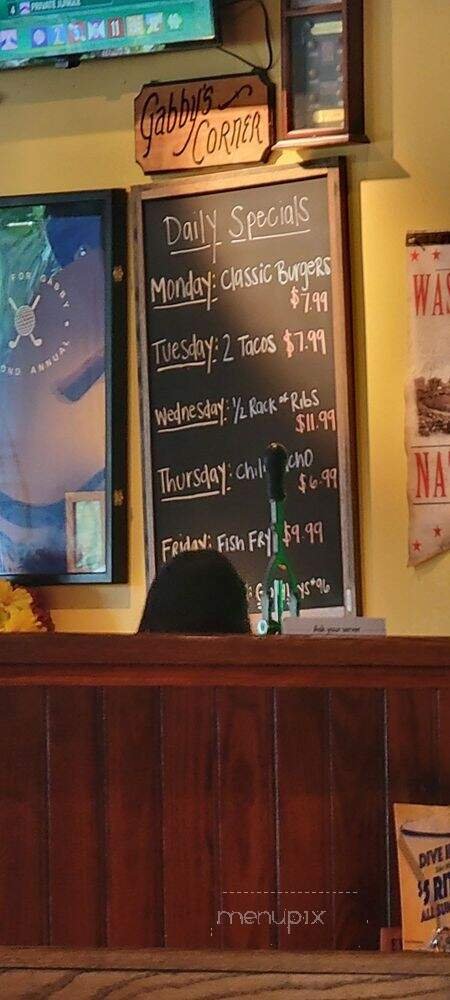 4 PRIVATE JUNGLE
Gabby's
CORNER
Daily Specials
Monday: Classic Burgers
$7.99
Tuesday: 2 Tacos $7.99
Wednesday: 1/2 Rack of Ribs
$11.99
Thursday:
$6.99
Friday: Fish Fry $9.99
FOR GABBY
OND ANNUAL
WAS
NA
Ask your server
DIVE
ALL
menupix